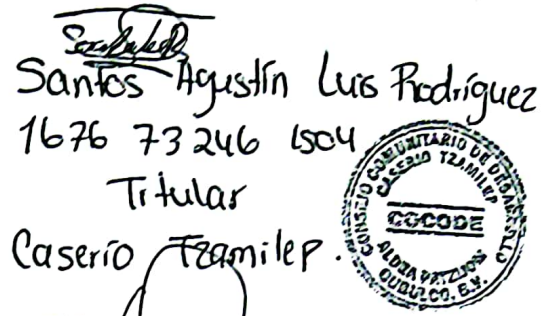 Santos Agustín Luis Rodríguez
1676 73246 1504
Tritular
Caserío Tzamilep.
CONSEJO COMUNITARIO DE DESARROLLO
CASERIO TZAMILEP
COCODE
ALDEA PATZIJOM
CUBULCO, B.V.